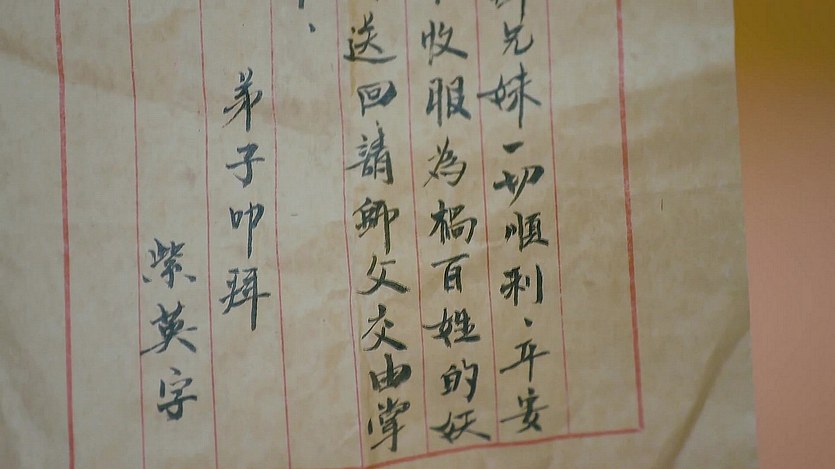 兄妹一切順利、平安
收服為禍百姓的妖
送回請師父交由掌
、
弟子叩拜
紫英字